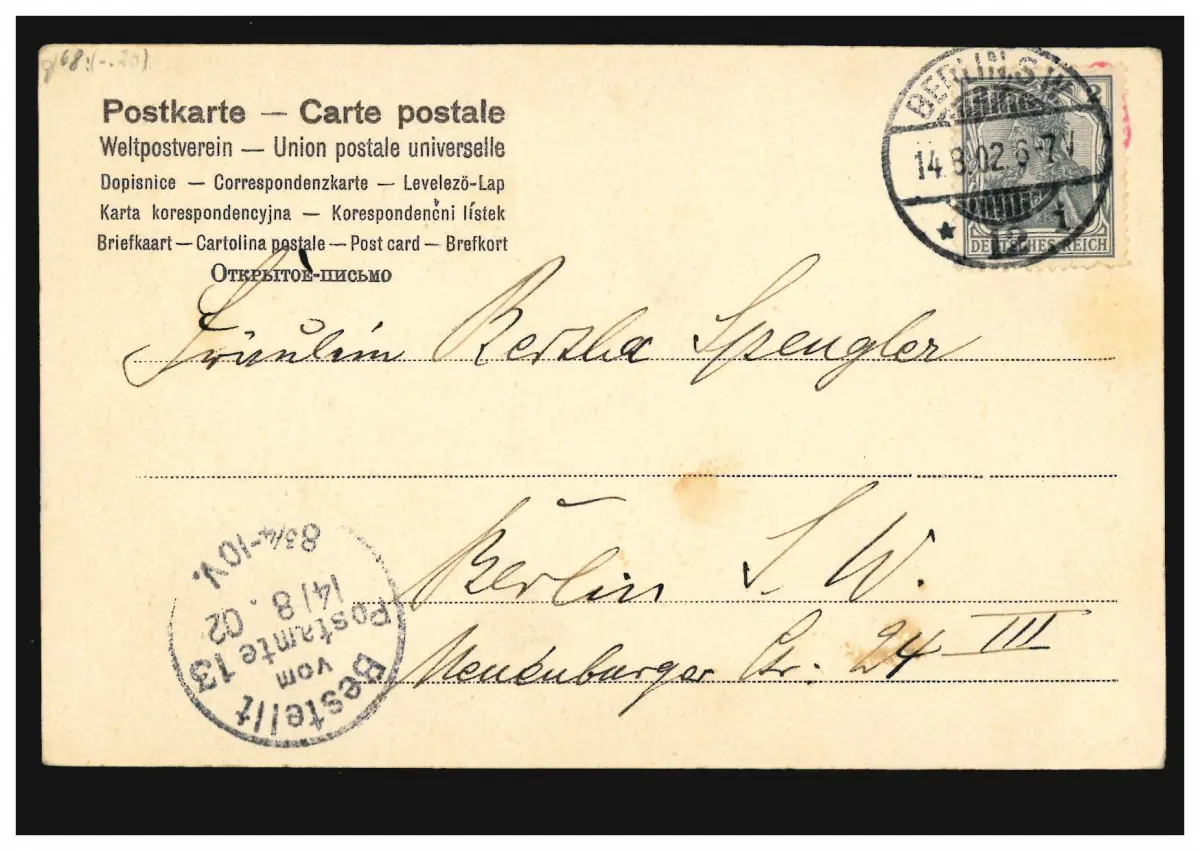 Postkarte — Carte postale
Weltpostverein — Union postale universelle
Dopisnice — Correspondenzkarte — Levelezö-Lap
Karta korespondencyjna — Korespondenčni lístek
Briefkaart — Cartolina postale — Post card — Brefkort
Открытое-письмо
BERLIN S.W.
14.8.02.6-7V
* 12 i
2
DEUTSCHES REICH
Fräulein Bertha Spengler
Berlin S. W.
Neuenburger Str. 24 III
Bestellt
vom
Postamte 13
14/8. 02
8 3/4-10V.